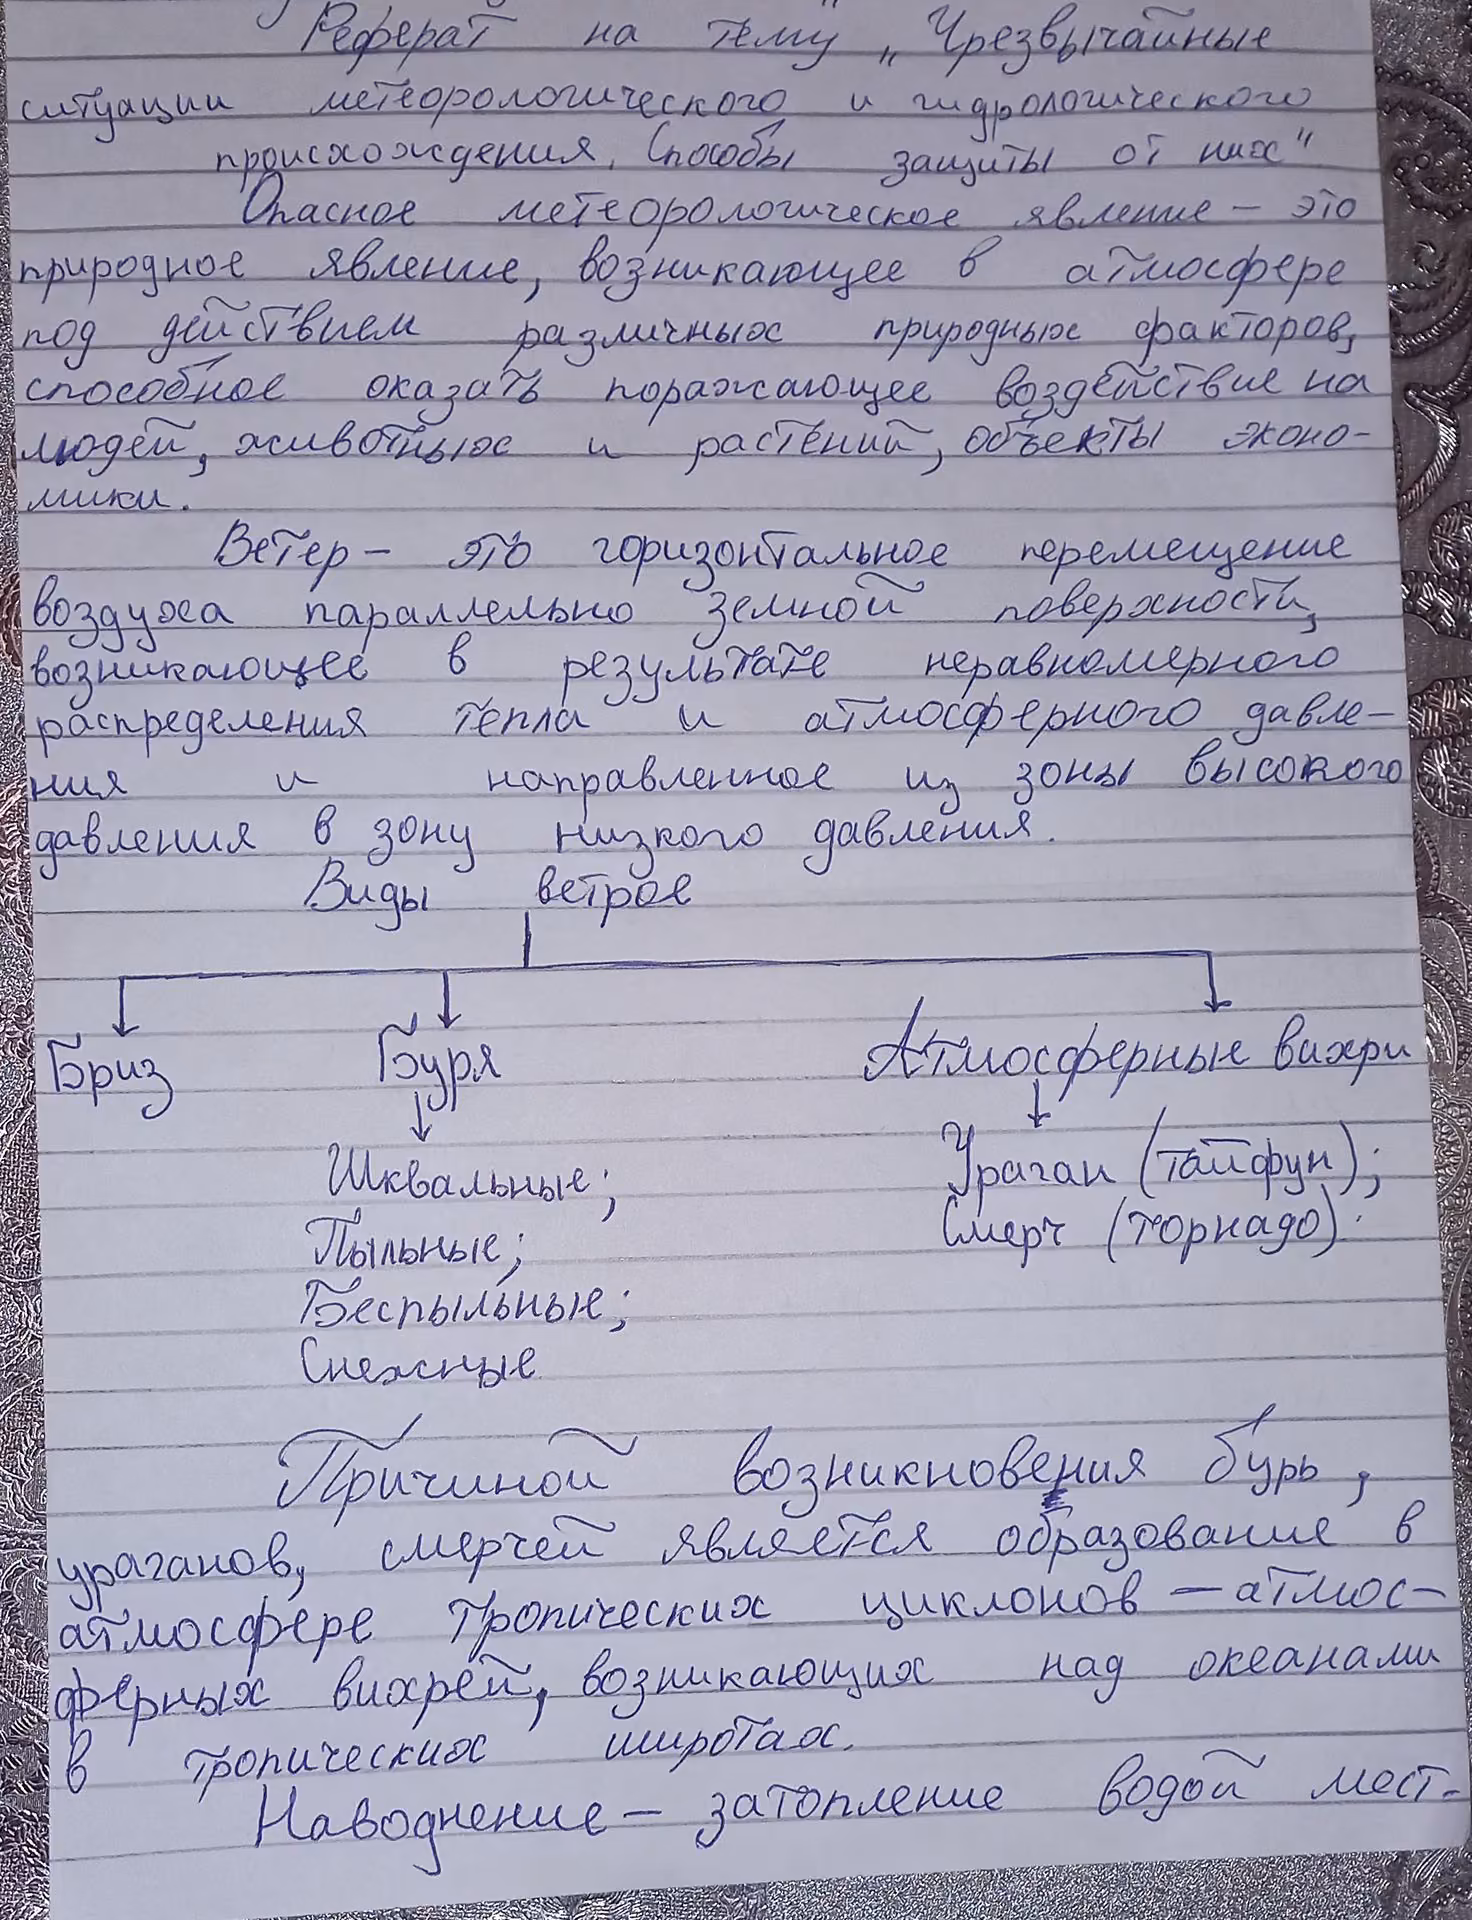 Реферат на тему „Чрезвычайные
ситуации метеорологического и гидрологического
происхождения. Способы защиты от них"
Опасное метеорологическое явление – это
природное явление, возникающее в атмосфере
под действием различных природных факторов,
способное оказать поражающее воздействие на
людей, животных и растений, объекты эконо-
мики.
Ветер – это горизонтальное перемещение
воздуха параллельно земной поверхности,
возникающее в результате неравномерного
распределения тепла и атмосферного давле-
ния и направленное из зоны высокого
давления в зону низкого давления.
Виды ветров
Бриз Буря Атмосферные вихри
Шквальные; Ураган (тайфун);
Пыльные; Смерч (торнадо).
Беспыльные;
Снежные
Причиной возникновения бурь,
ураганов, смерчей является образование в
атмосфере тропических циклонов – атмос-
ферных вихрей, возникающих над океанами
в тропических широтах.
Наводнение – затопление водой мест-